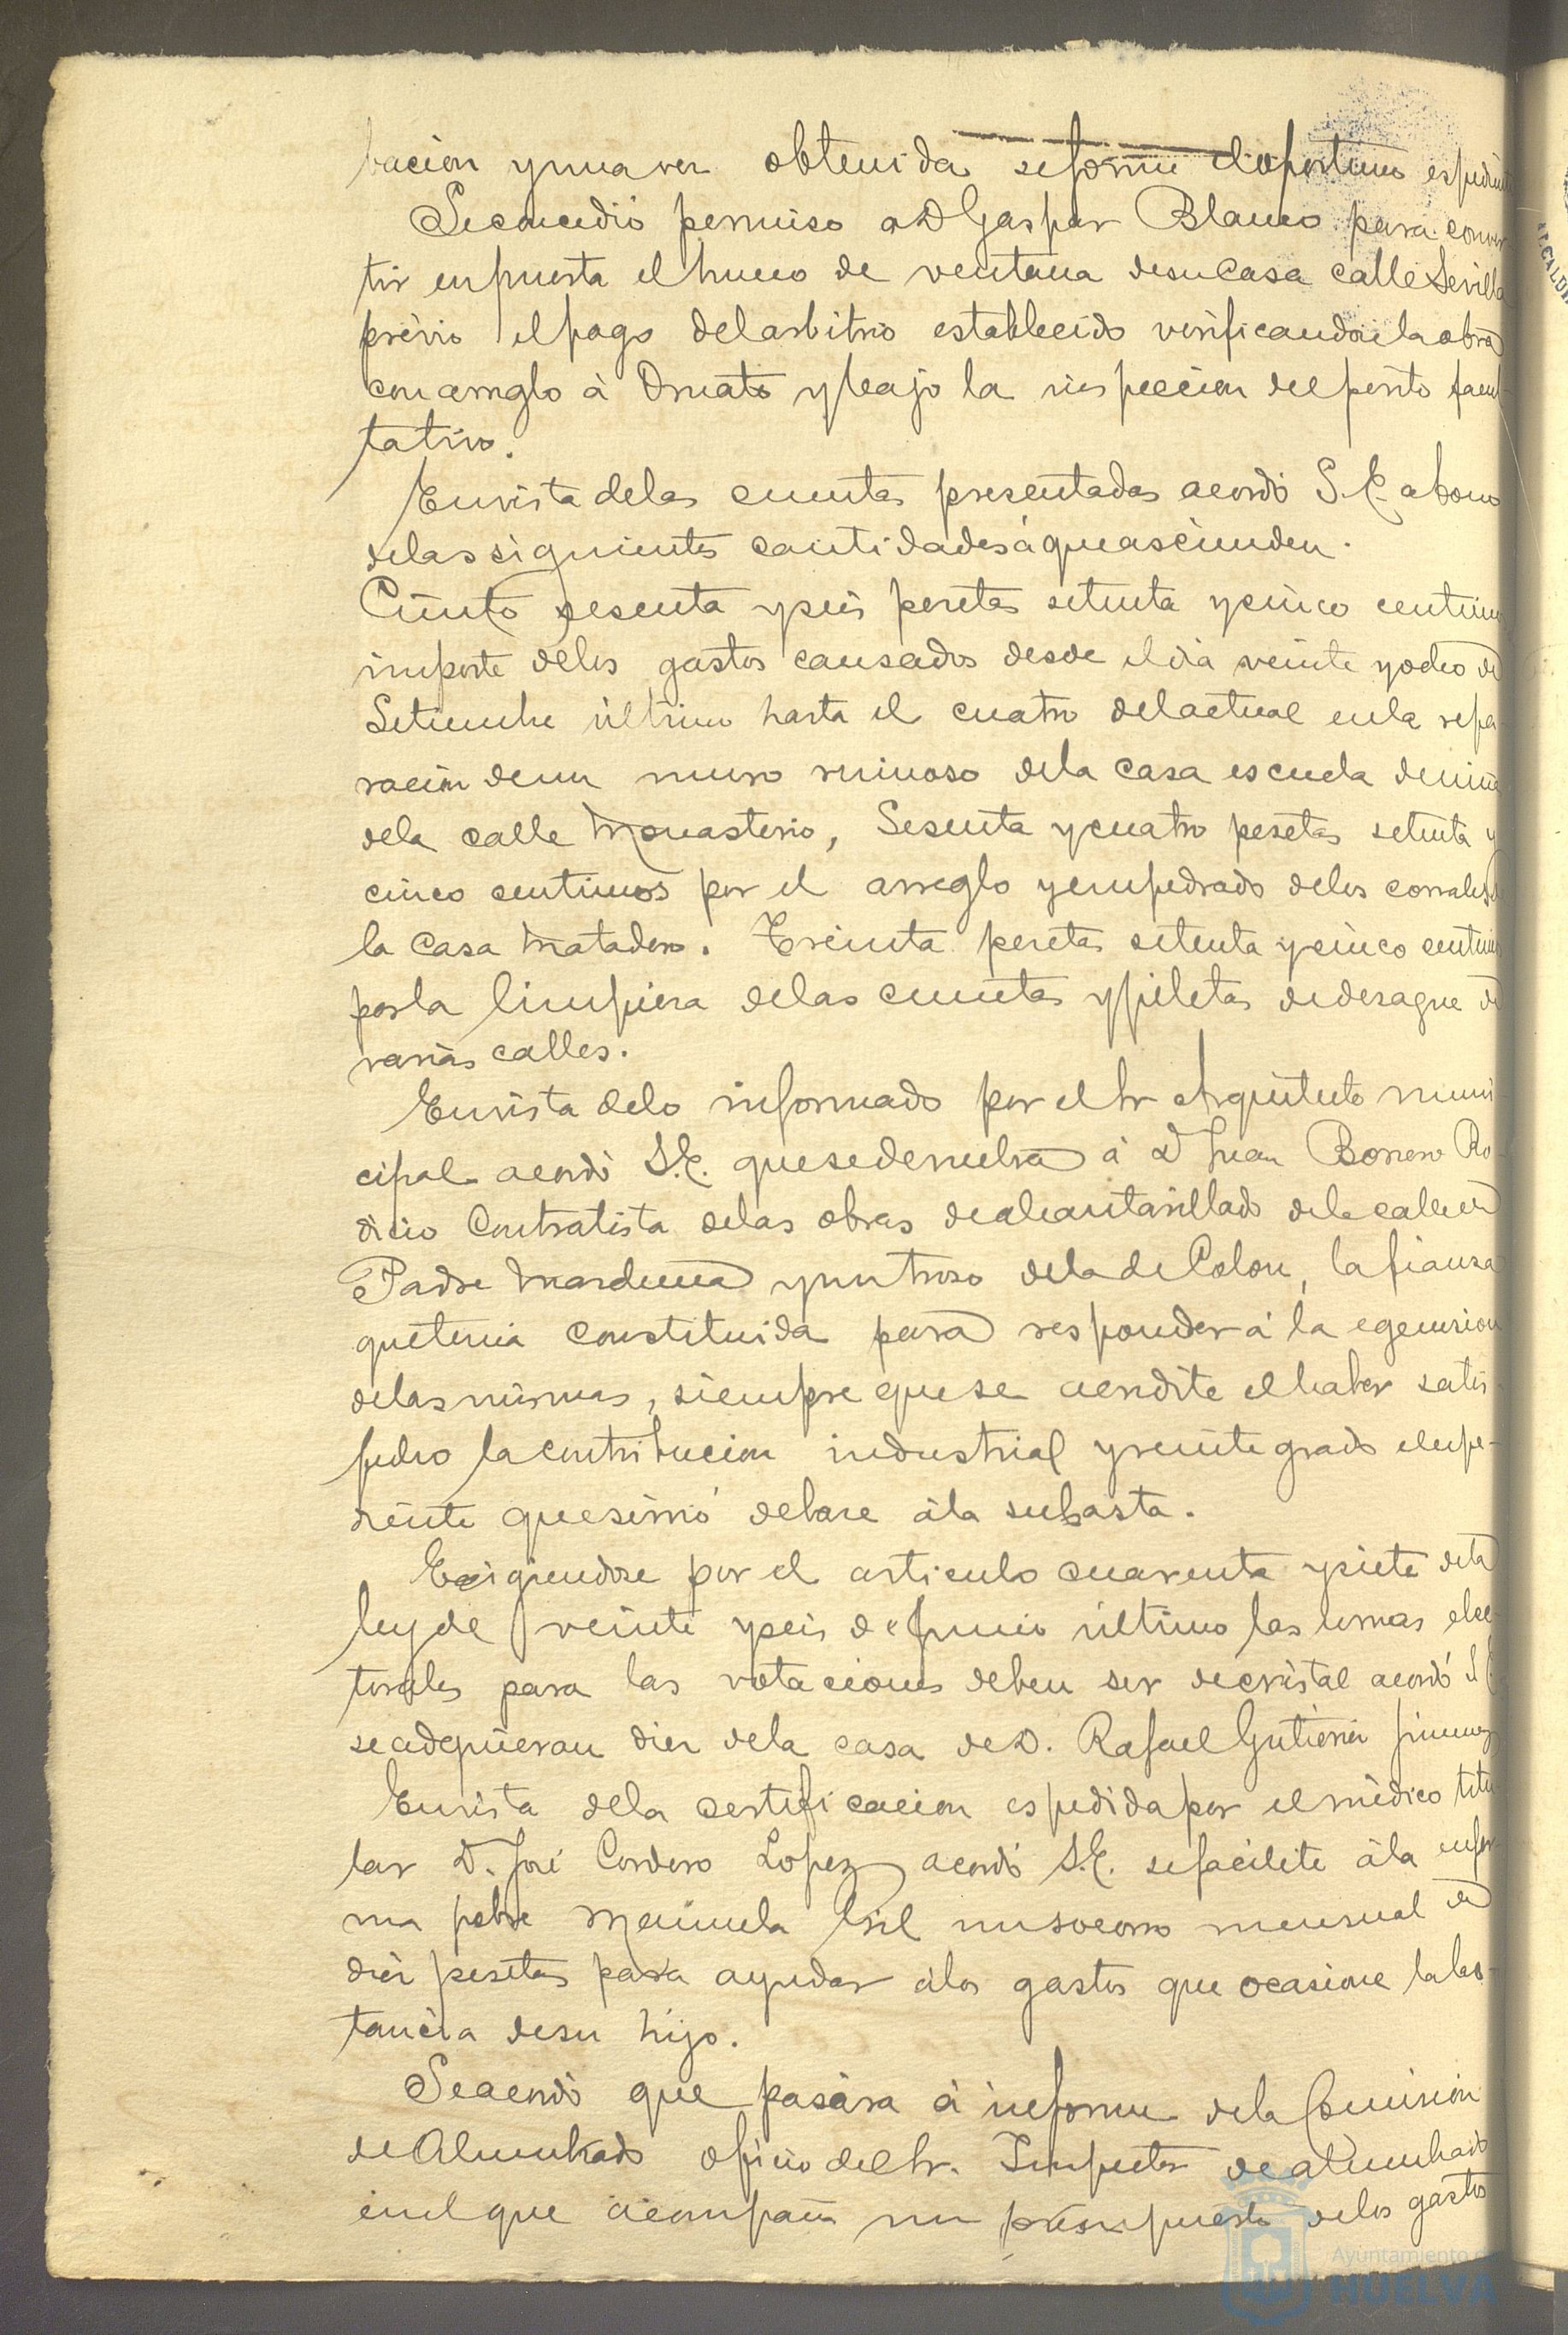 bacion y una vez obtenida se forme el oportuno espedien
Se concedió permiso a D Gaspar Blanco para conver
tir en puerta el hueco de ventana de su casa calle Sevilla
prévio el pago del arbitrio establecido verificandose la obra
con arreglo á Ornato y bajo la inspeccion del perito facul
tativo.
En vista de las cuentas presentadas acordó S.E. abono
de las siguientes cantidades á que ascienden.
Ciento sesenta y seis pesetas setenta y cinco centimo
importe de los gastos causados desde el dia veinte y ocho de
Setiembre último hasta el cuatro del actual en la repa
racion de un muro ruinoso de la casa escuela de niña
de la calle Monasterio, Sesenta y cuatro pesetas setenta y
cinco centimos por el arreglo y empedrado de los corrales de
la Casa Matadero. Treinta pesetas setenta y cinco centimo
por la limpieza de las cunetas y piletas de desague de
varias calles.
En vista de lo informado por el Sr Arquitecto muni
cipal acordó S.E. que se devuelva á D Juan Borrero Ro
dicio Contratista de las obras de alcantarillado de la calle de
Padre Marchena y un trozo de la de Colon, la fianza
que tenia constituida para responder á la egecucion
de las mismas, siempre que se acredite el haber satis
fecho la contribucion industrial y reintegrado el espe-
diente que sirvió de base á la subasta.
Exigiendose por el articulo cuarenta y siete de la
ley de veinte y seis de Junio último las urnas elec-
torales para las votaciones deben ser de cristal acordó S.E.
se adquieran diez de la casa de D. Rafael Gutierrez Jimenez
En vista de la certificacion espedida por el médico titu
lar D. José Cordero Lopez acordó S.E. se facilite á la enfer
ma pobre Manuela Gil un socorro mensual de
diez pesetas para ayudar á los gastos que ocasione la lac-
tancia de su hijo.
Se acordó que pasára á informe de la Comision
de Alumbrado oficio del Sr. Inspector de alumbrado
en el que acompaña un presupuesto de los gastos
Ayuntamiento de
HUELVA